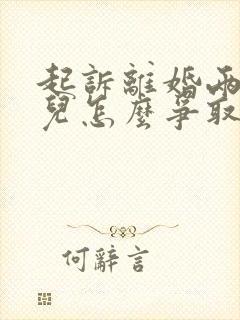 起訴離婚兩
兒怎麼爭取
何辭言